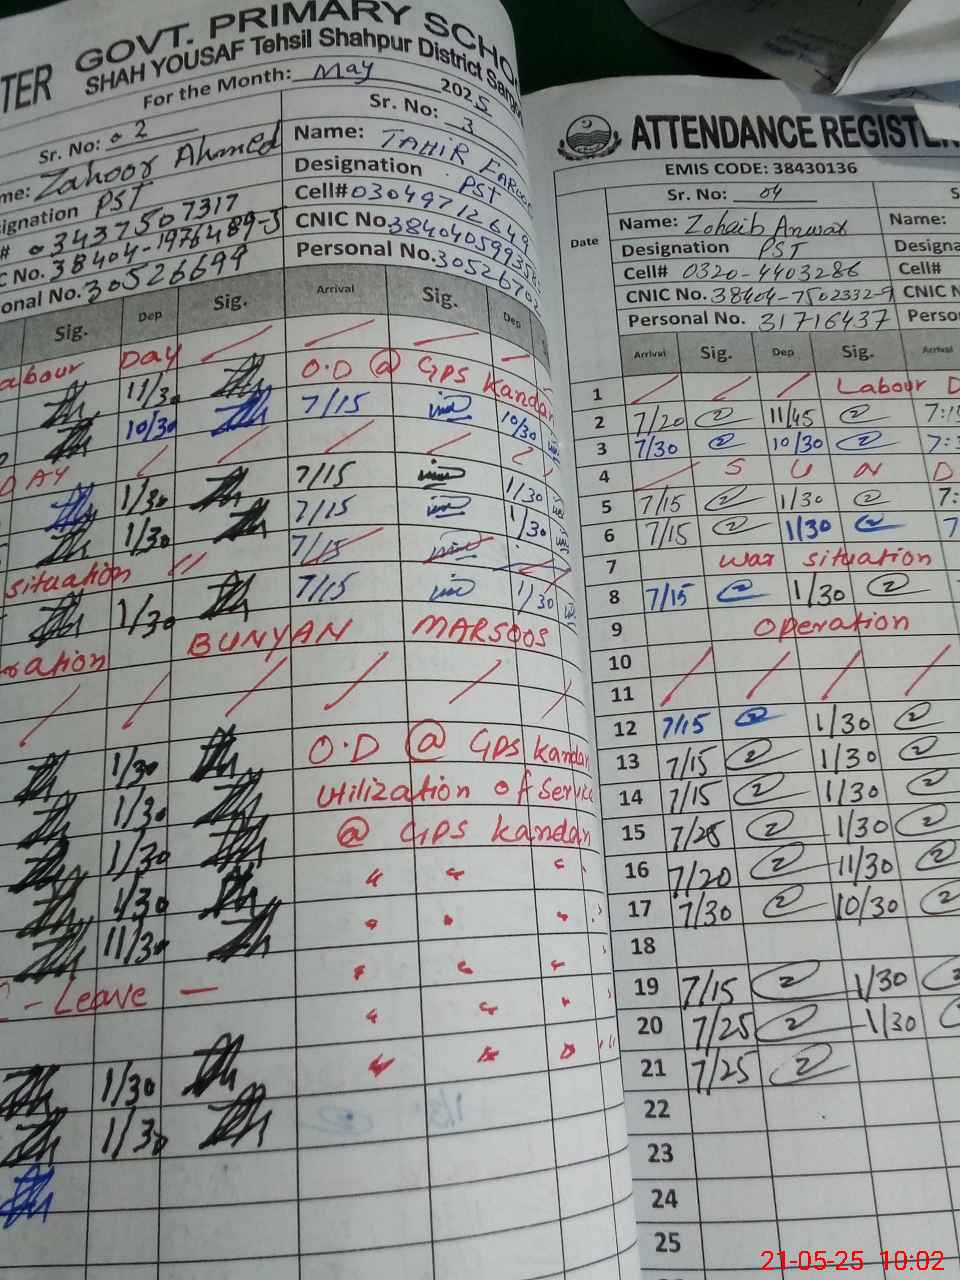 TER GOVT. PRIMARY SCHO
SHAH YOUSAF Tehsil Shahpur District Sargo
For the Month: May 2025
Sr. No: 02
me: Zahoor Ahmed
signation PST
# 03437507317
C No. 38404-1976489-5
onal No. 30526699
Sr. No: 3
Name: TAHIR FAROOQ
Designation PST
Cell# 03049712649
CNIC No.
Personal No. 30526702
Sig. Dep Sig. Arrival Sig. Dep
abour Day O.D @ GPS Kandan
11/30
10/30 7/15 10/30
DAY
1/30 7/15 1/30
1/30 7/15 1/30
situation " 7/15
1/30 7/15 1/30
ration BUNYAN MARSOOS
1/30 O.D @ GPS Kandan
1/30 utilization of Service
1/30 @ GPS Kandan
1/30
11/30
- Leave -
1/30
1/30
ATTENDANCE REGISTE
EMIS CODE: 38430136
Date
Sr. No: 04 S
Name: Zohaib Anwar Name:
Designation PST Designa
Cell# 0320-4403286 Cell#
CNIC No. 38404-7502332-9 CNIC N
Personal No. 31716437 Perso
Arrival Sig. Dep Sig. Arrival
1 Labour D
2 7/20 11/45 7:1
3 7/30 10/30 7:
4 S U N D
5 7/15 1/30 7:
6 7/15 1/30 7
7 war situation
8 7/15 1/30
9 Operation
10
11
12 7/15 1/30
13 7/15 1/30
14 7/15 1/30
15 7/25 1/30
16 7/20 11/30
17 7/30 10/30
18
19 7/15 1/30
20 7/25 1/30
21 7/25
22
23
24
25
21-05-25 10:02